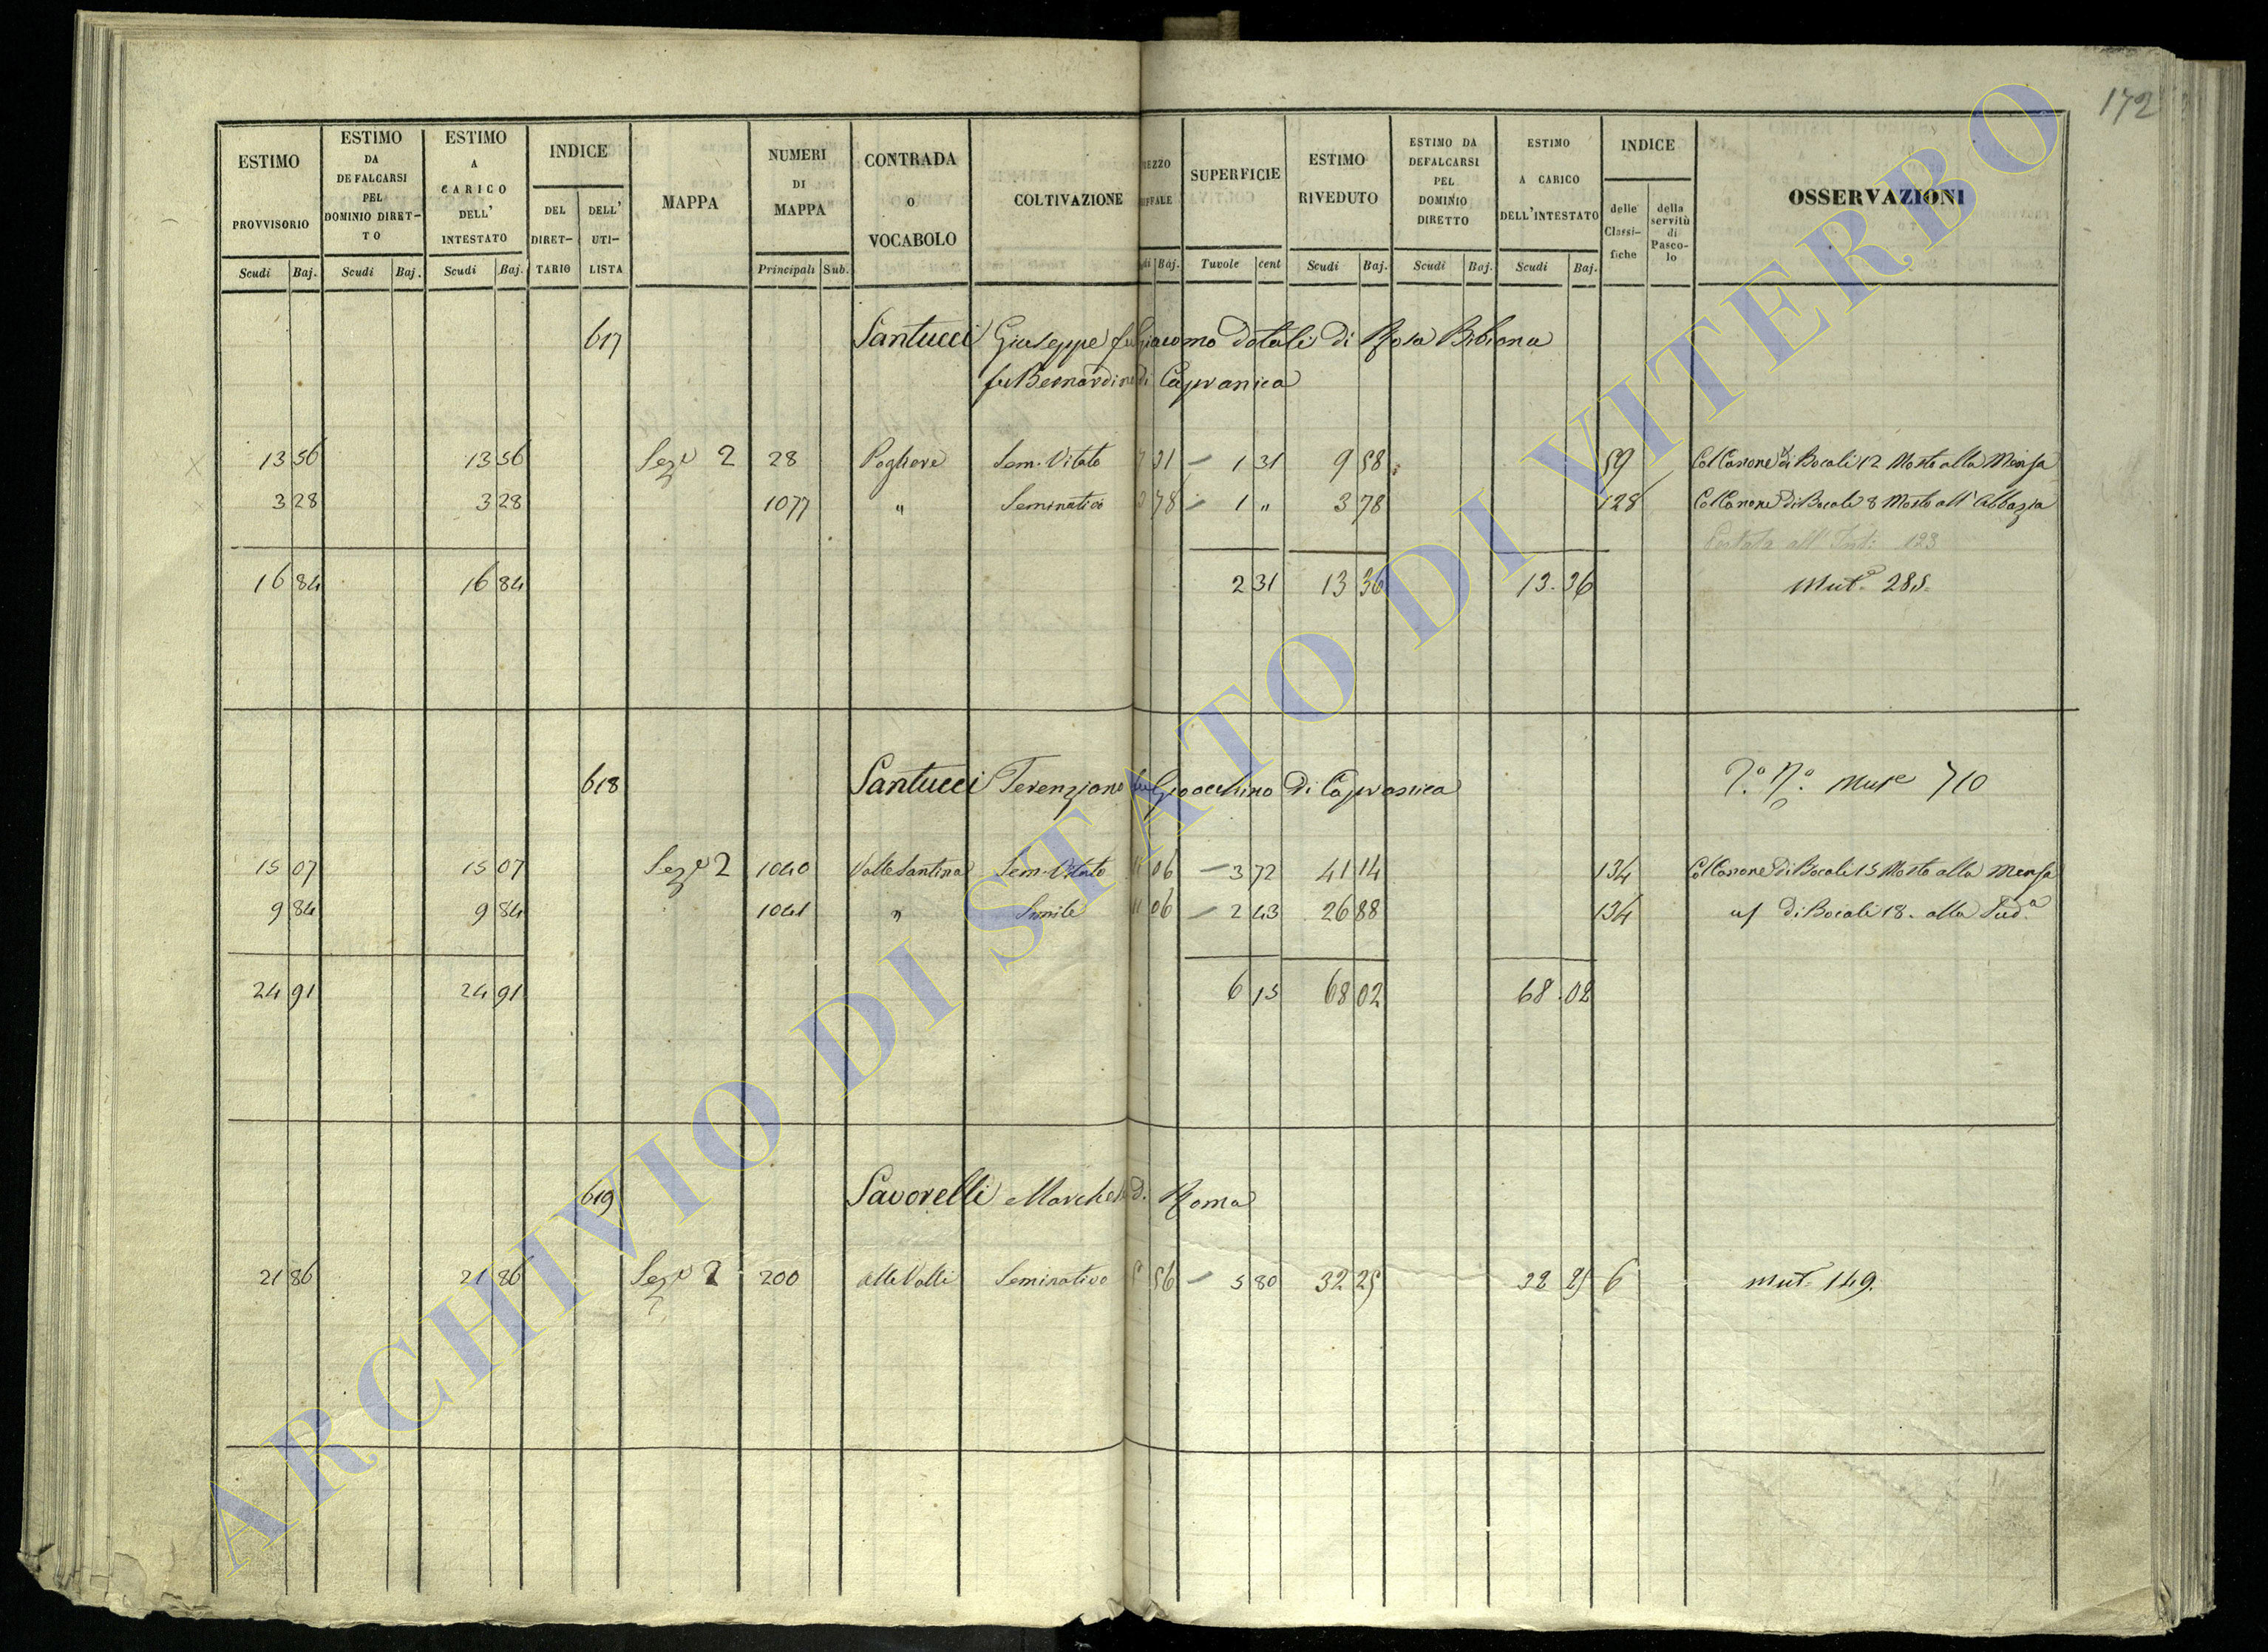 172
ESTIMO PROVVISORIO Scudi Baj.
ESTIMO DA DEFALCARSI PEL DOMINIO DIRET-TO Scudi Baj.
ESTIMO A CARICO DELL' INTESTATO Scudi Baj.
INDICE DEL DIRET-TARIO DELL' UTI-LISTA
MAPPA
NUMERI DI MAPPA Principali Sub.
CONTRADA O VOCABOLO
COLTIVAZIONE
Baj.
SUPERFICIE Tavole cent
ESTIMO RIVEDUTO Scudi Baj.
ESTIMO DA DEFALCARSI PEL DOMINIO DIRETTO Scudi Baj.
ESTIMO A CARICO DELL'INTESTATO Scudi Baj.
INDICE delle Classi-fiche della servitù di Pasco-lo
OSSERVAZIONI
617 Santucci Giuseppe fu Giacomo Dotali di Rosa Bibiana
fu Bernardino di Capranica
13 56 13 56 Sez.e 2 28 Pogliere Sem. Vitato 31 — 1 31 9 58 59 Col Canone di Bocali 12 Mosto alla Mensa
3 28 3 28 1077 " Seminativo 78 — 1 " 3 78 128 Col Canone di Bocali 8 Mosto all' Abbazia
123
16 84 16 84 2 31 13 36 13. 36 Mut.e 285.
618 Santucci Terenziano fu Gioacchino di Capranica 710
15 07 15 07 Sez.e 2 1040 Valle Santina Sem. Vitato 11 06 — 3 72 41 14 134 Col Canone di Bocali 15 Mosto alla Mensa
9 84 9 84 1041 " Simile 11 06 — 2 43 26 88 134 di Bocali 18. alla Sud.a
24 91 24 91 6 15 68 02 68. 02
619 Savorelli Marchese di Roma
21 86 21 86 Sez.e 2 200 alle Valli Seminativo 5 56 — 5 80 32 25 32 25 6 Mut.e 149.
ARCHIVIO DI STATO DI VITERBO